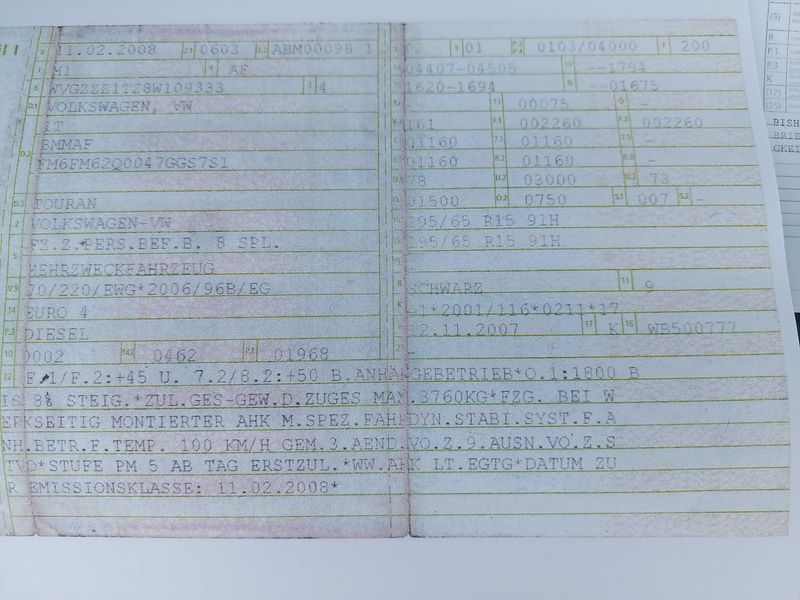 B 11.02.2008 2.1 0603 2.2 ABM00098 1
J M1 4 AF
E WVGZZZ1TZ8W109333 3 4
D.1 VOLKSWAGEN, VW
1T
D.2 BMMAF
FM6FM62Q0047GGS7S1
D.3 TOURAN
2 VOLKSWAGEN-VW
FZ.Z.PERS.BEF.B. 8 SPL.
5 MEHRZWECKFAHRZEUG
V.9 70/220/EWG*2006/96B/EG
14 EURO 4
P.3 DIESEL
10 0002 14.1 0462 P.1 01968
L 02 9 01 0103/04000 T 200
18 04407-04505 19 --1794
20 1620-1694 G --01675
12 - 13 00075 Q -
V.7 161 F.1 002260 F.2 002260
7.1 01160 7.2 01160 7.3 -
8.1 01160 8.2 01160 8.3 -
U.1 78 U.2 03000 U.3 73
O.1 01500 O.2 0750 S.1 007 S.2 -
15.1 195/65 R15 91H
15.2 195/65 R15 91H
R SCHWARZ 11 9
K e1*2001/116*0211*17
6 12.11.2007 17 K 16 WB500777
21 -
22 F.1/F.2:+45 U. 7.2/8.2:+50 B.ANHÄNGEBETRIEB*O.1:1800 B
IS 8% STEIG.*ZUL.GES-GEW.D.ZUGES MAX.3760KG*FZG. BEI W
ERKSEITIG MONTIERTER AHK M.SPEZ.FAHRDYN.STABI.SYST.F.A
NH.BETR.F.TEMP. 100 KM/H GEM.3.AEND.VO.Z.9.AUSN.VO.Z.S
TVO*STUFE PM 5 AB TAG ERSTZUL.*WW.AHK LT.EGTG*DATUM ZU
R EMISSIONSKLASSE: 11.02.2008*
(5)
R
P.1
P.3
K
(17)
(25)
BISH
BRIE
GKEI